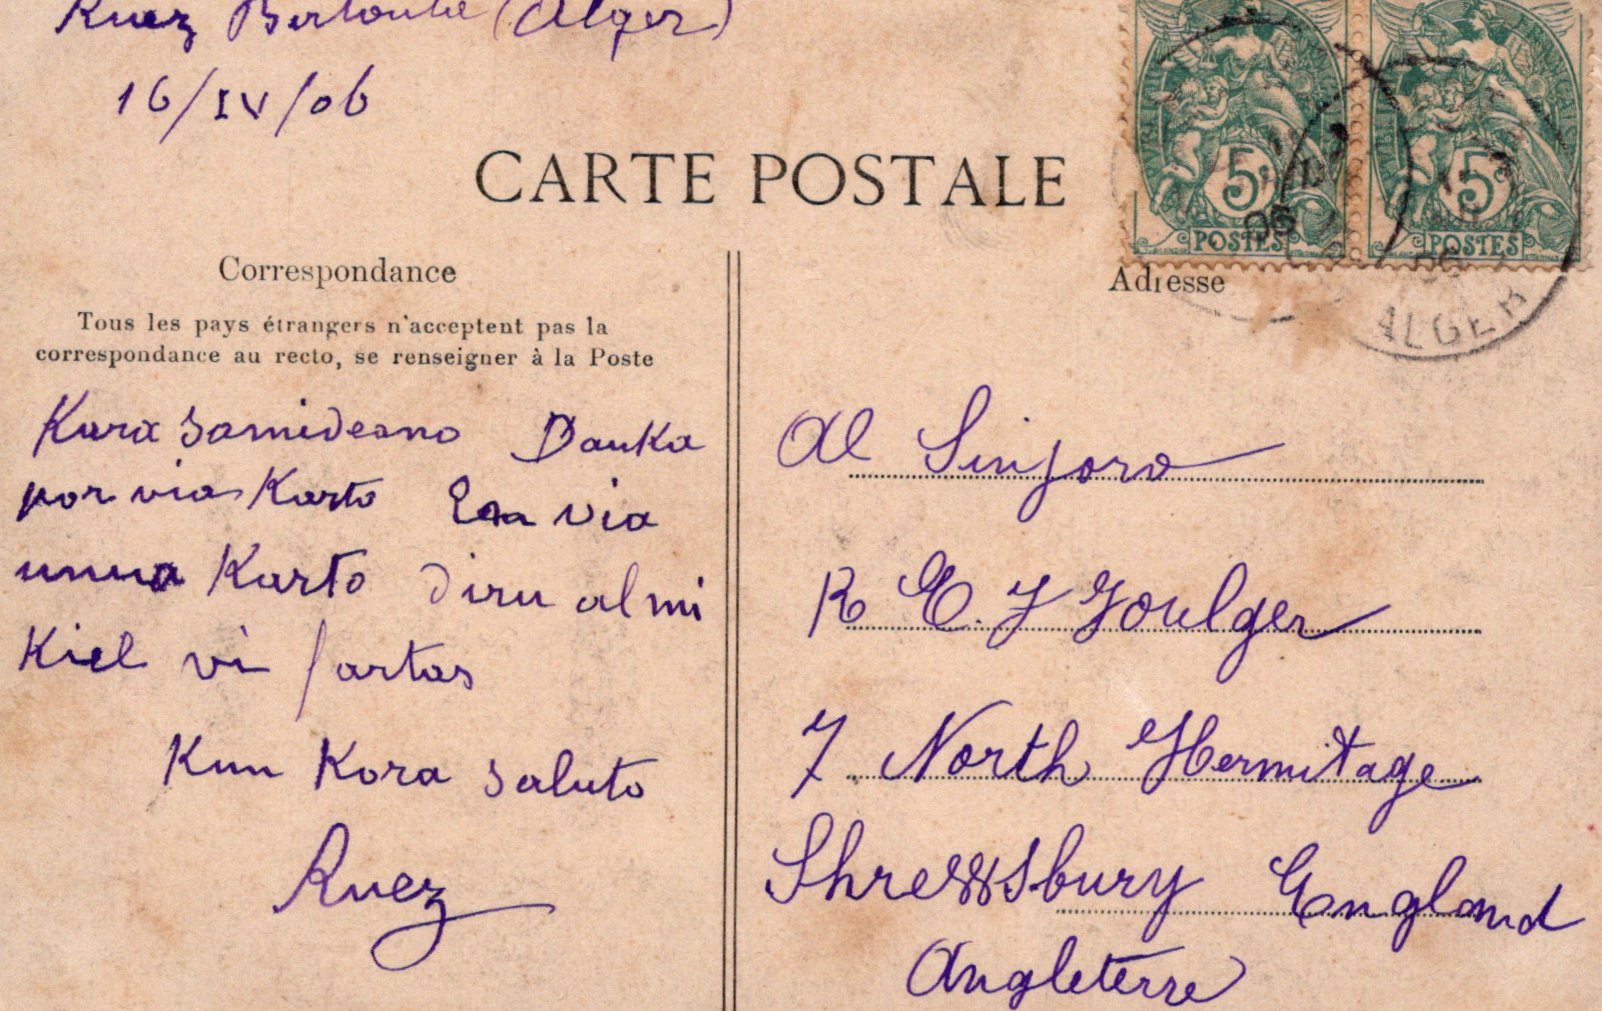 Ruez Bertouche (Alger)
16/IV/06
CARTE POSTALE
5
POSTES
06
5
POSTES
06
ALGER
Correspondance
Tous les pays étrangers n'acceptent pas la
correspondance au recto, se renseigner à la Poste
Adresse
Kara Samideano Danka
por via Karto En via
unua Karto diru al mi
Kiel vi fartas
Kun Kora Saluto
Ruez
Al Sinjoro
R E. J Goulger
7 North Hermitage
Shrewsbury England
Angleterre